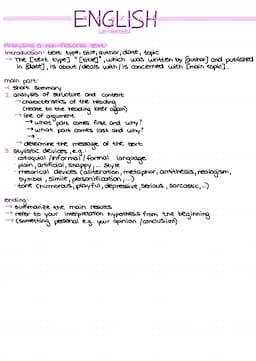 ENGLISH
Analysing a non-fictional text:
introduction: text type, title, author, date, topic
→ The [text type] "[title]", which was written by [author] and published
in [date], is about / deals with / is concerned with [main topic].
main part:
1. short summary
2. analysis of structure and content
→ characteristics of the heading
(relate to the heading later again)
→ line of argument
→ what part comes first and why?
→ what part comes last and why?
→ ...
→ determine the message of the text
3. stylistic devices, e.g.:
colloquial / informal / formal language
plain, artificial, snappy, ... style
rhetorical devices (alliteration, metaphor, antithesis, neologism,
symbol, simile, personification, ...)
tone (humorous, playful, depressive, serious, sarcastic, ...)
ending:
→ summarize the main results
→ refer to your interpretation hypothesis from the beginning
→ (something personal e.g. your opinion / conclusion)